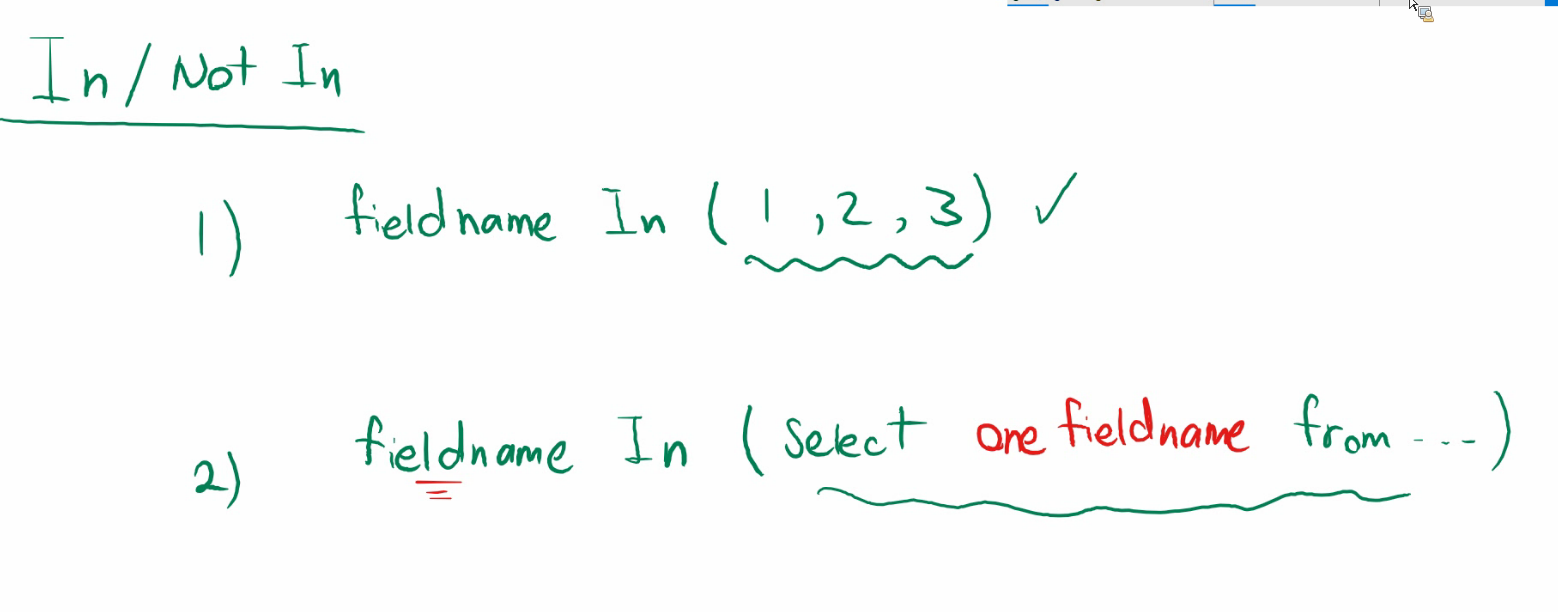 In / Not In
1) fieldname In ( 1 , 2 , 3 ) ✓
2) fieldname In ( Select one fieldname from --- )